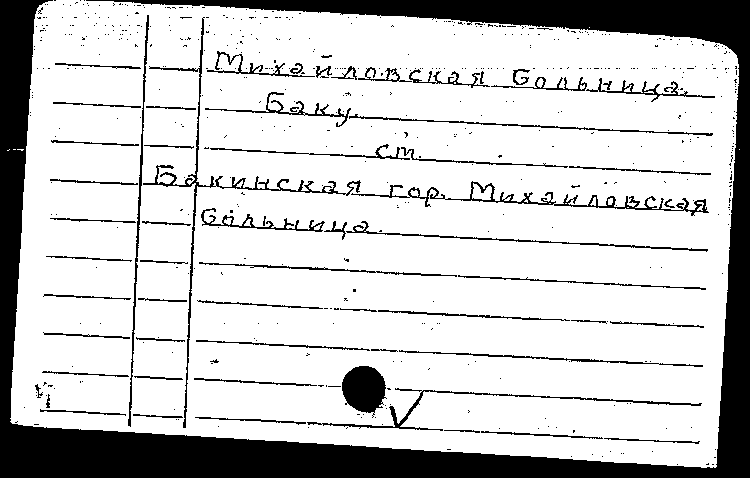 Михайловская больница.
Баку.
ст.
Бакинская гор. Михайловская
больница.